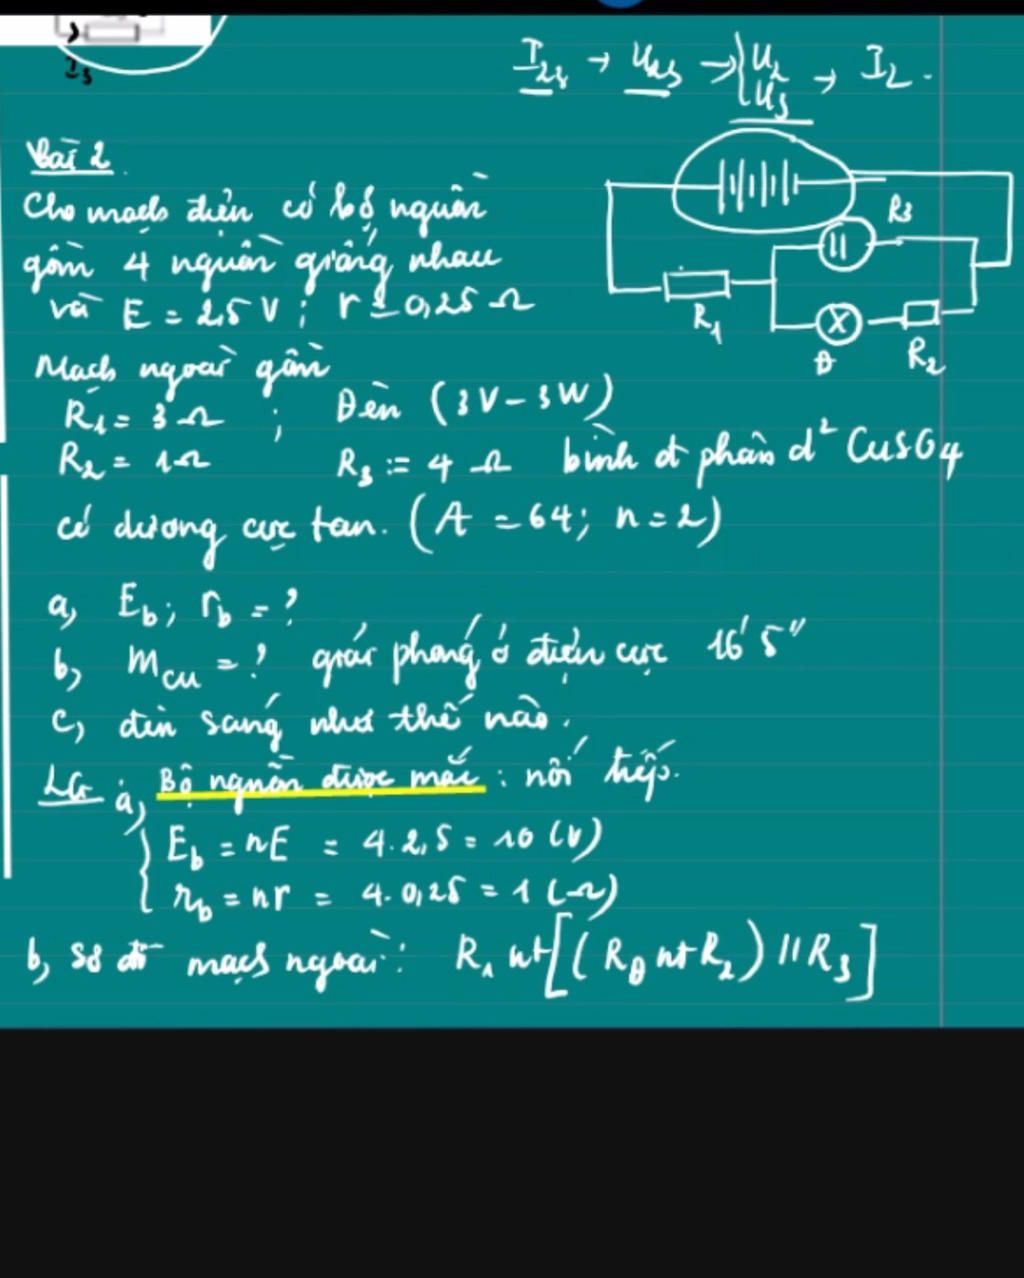 I₃
I₂₃ → U₂₃ → { U₂ U₃ → I₂.
Bài 2
Cho mạch điện có bộ nguồn
gồm 4 nguồn giống nhau
và E = 2,5 V ; r = 0,25 Ω
R₃
R₁
Đ
R₂
Mạch ngoài gồm
R₁ = 3 Ω ; Đèn (3V - 3W)
R₂ = 1 Ω R₃ = 4 Ω bình đ phân d² CuSO4
có dương cực tan. (A = 64; n = 2)
a, Eb; rb = ?
b, mCu = ? giải phóng ở điện cực 16' 5"
c, đèn sáng như thế nào.
LG a, Bộ nguồn được mắc : nối tiếp.
{ Eb = nE = 4. 2,5 = 10 (V)
{ rb = nr = 4. 0,25 = 1 (Ω)
b, sơ đồ mạch ngoài: R₁ nt [(RĐ nt R₂) // R₃]